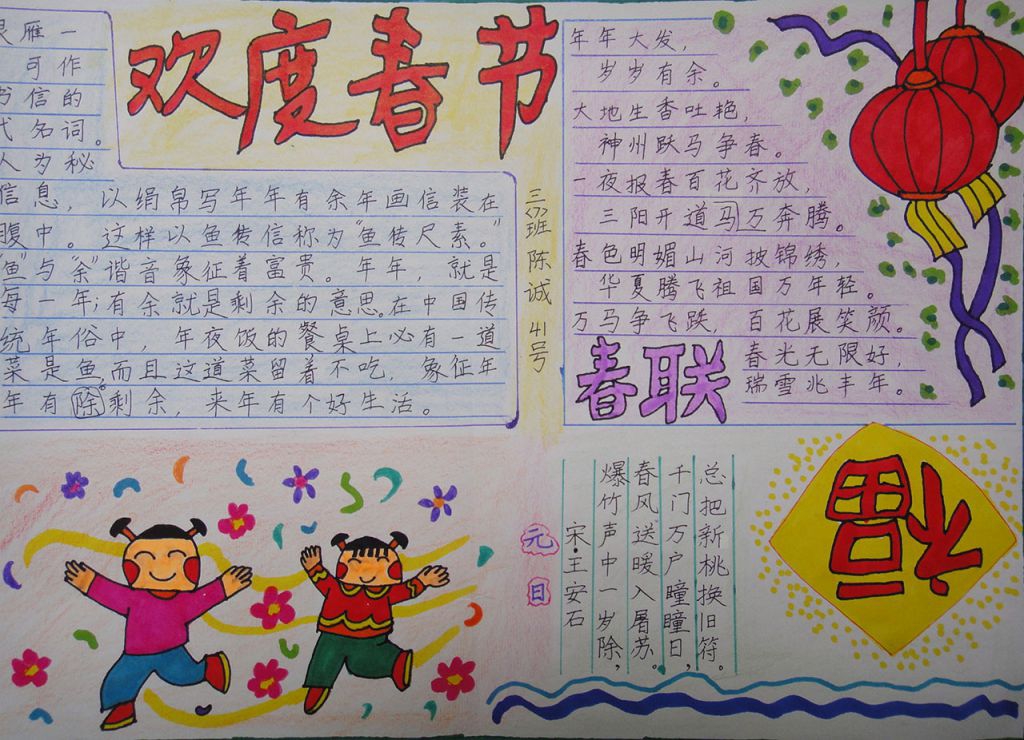 欢度春节
雁一
可作
书信的
代名词。
人为秘
信息，以绢帛写年年有余年画信装在
腹中。这样以鱼传信称为“鱼传尺素。”
“鱼”与“余”谐音象征着富贵。年年，就是
每一年；有余就是剩余的意思。在中国传
统年俗中，年夜饭的餐桌上必有一道
菜是鱼，而且这道菜留着不吃，象征年
年有除剩余，来年有个好生活。
三(7)班 陈诚 41号
年年大发，
岁岁有余。
大地生香吐艳，
神州跃马争春。
一夜报春百花齐放，
三阳开道马万奔腾。
春色明媚山河披锦绣，
华夏腾飞祖国万年轻。
万马争飞跃，百花展笑颜。
春联
春光无限好，
瑞雪兆丰年。
元日
宋·王安石
爆竹声中一岁除，
春风送暖入屠苏。
千门万户瞳瞳日，
总把新桃换旧符。
福